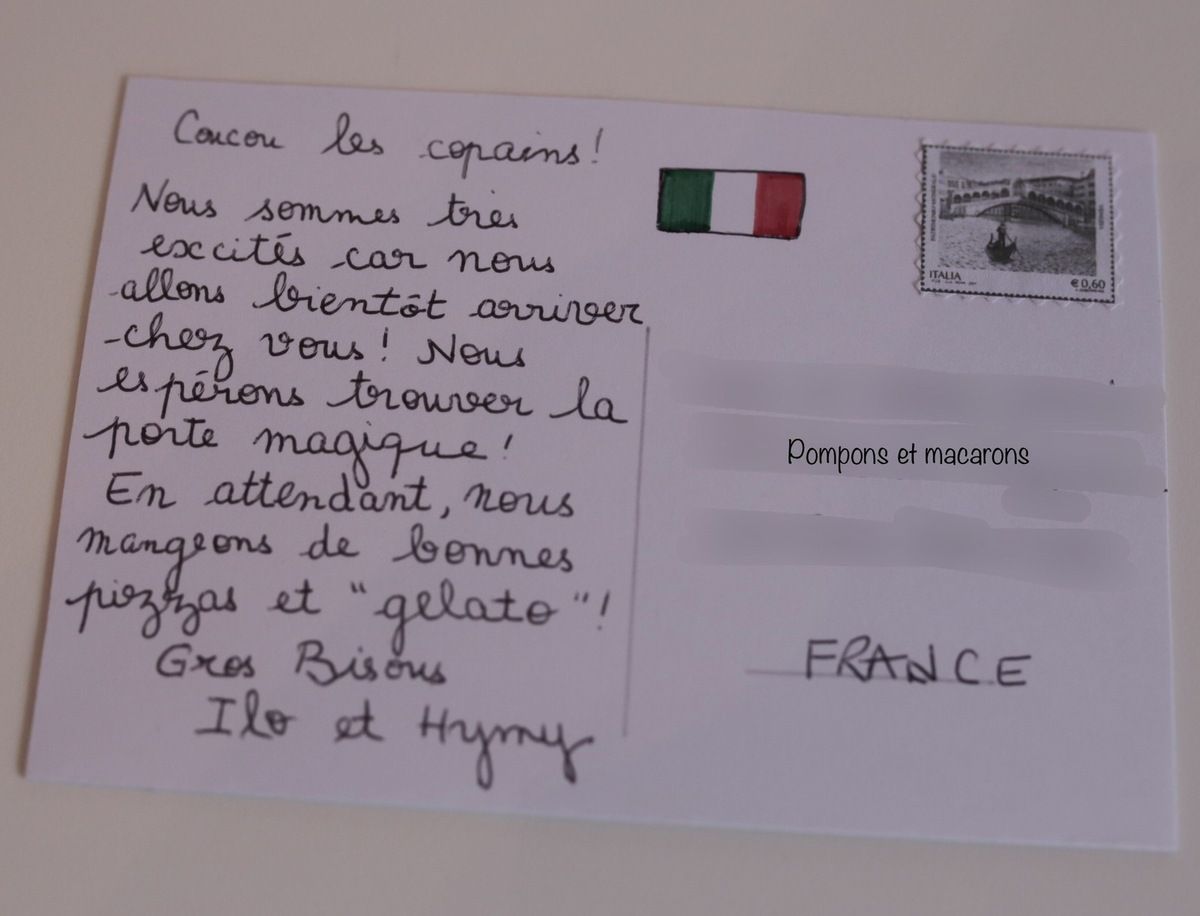 Coucou les copains!
Nous sommes très
excités car nous
allons bientôt arriver
chez vous! Nous
espérons trouver la
porte magique!
En attendant, nous
mangeons de bonnes
pizzas et "gelato"!
Gros Bisous
Ilo et Hymy
ITALIA
€0,60
Pompons et macarons
FRANCE